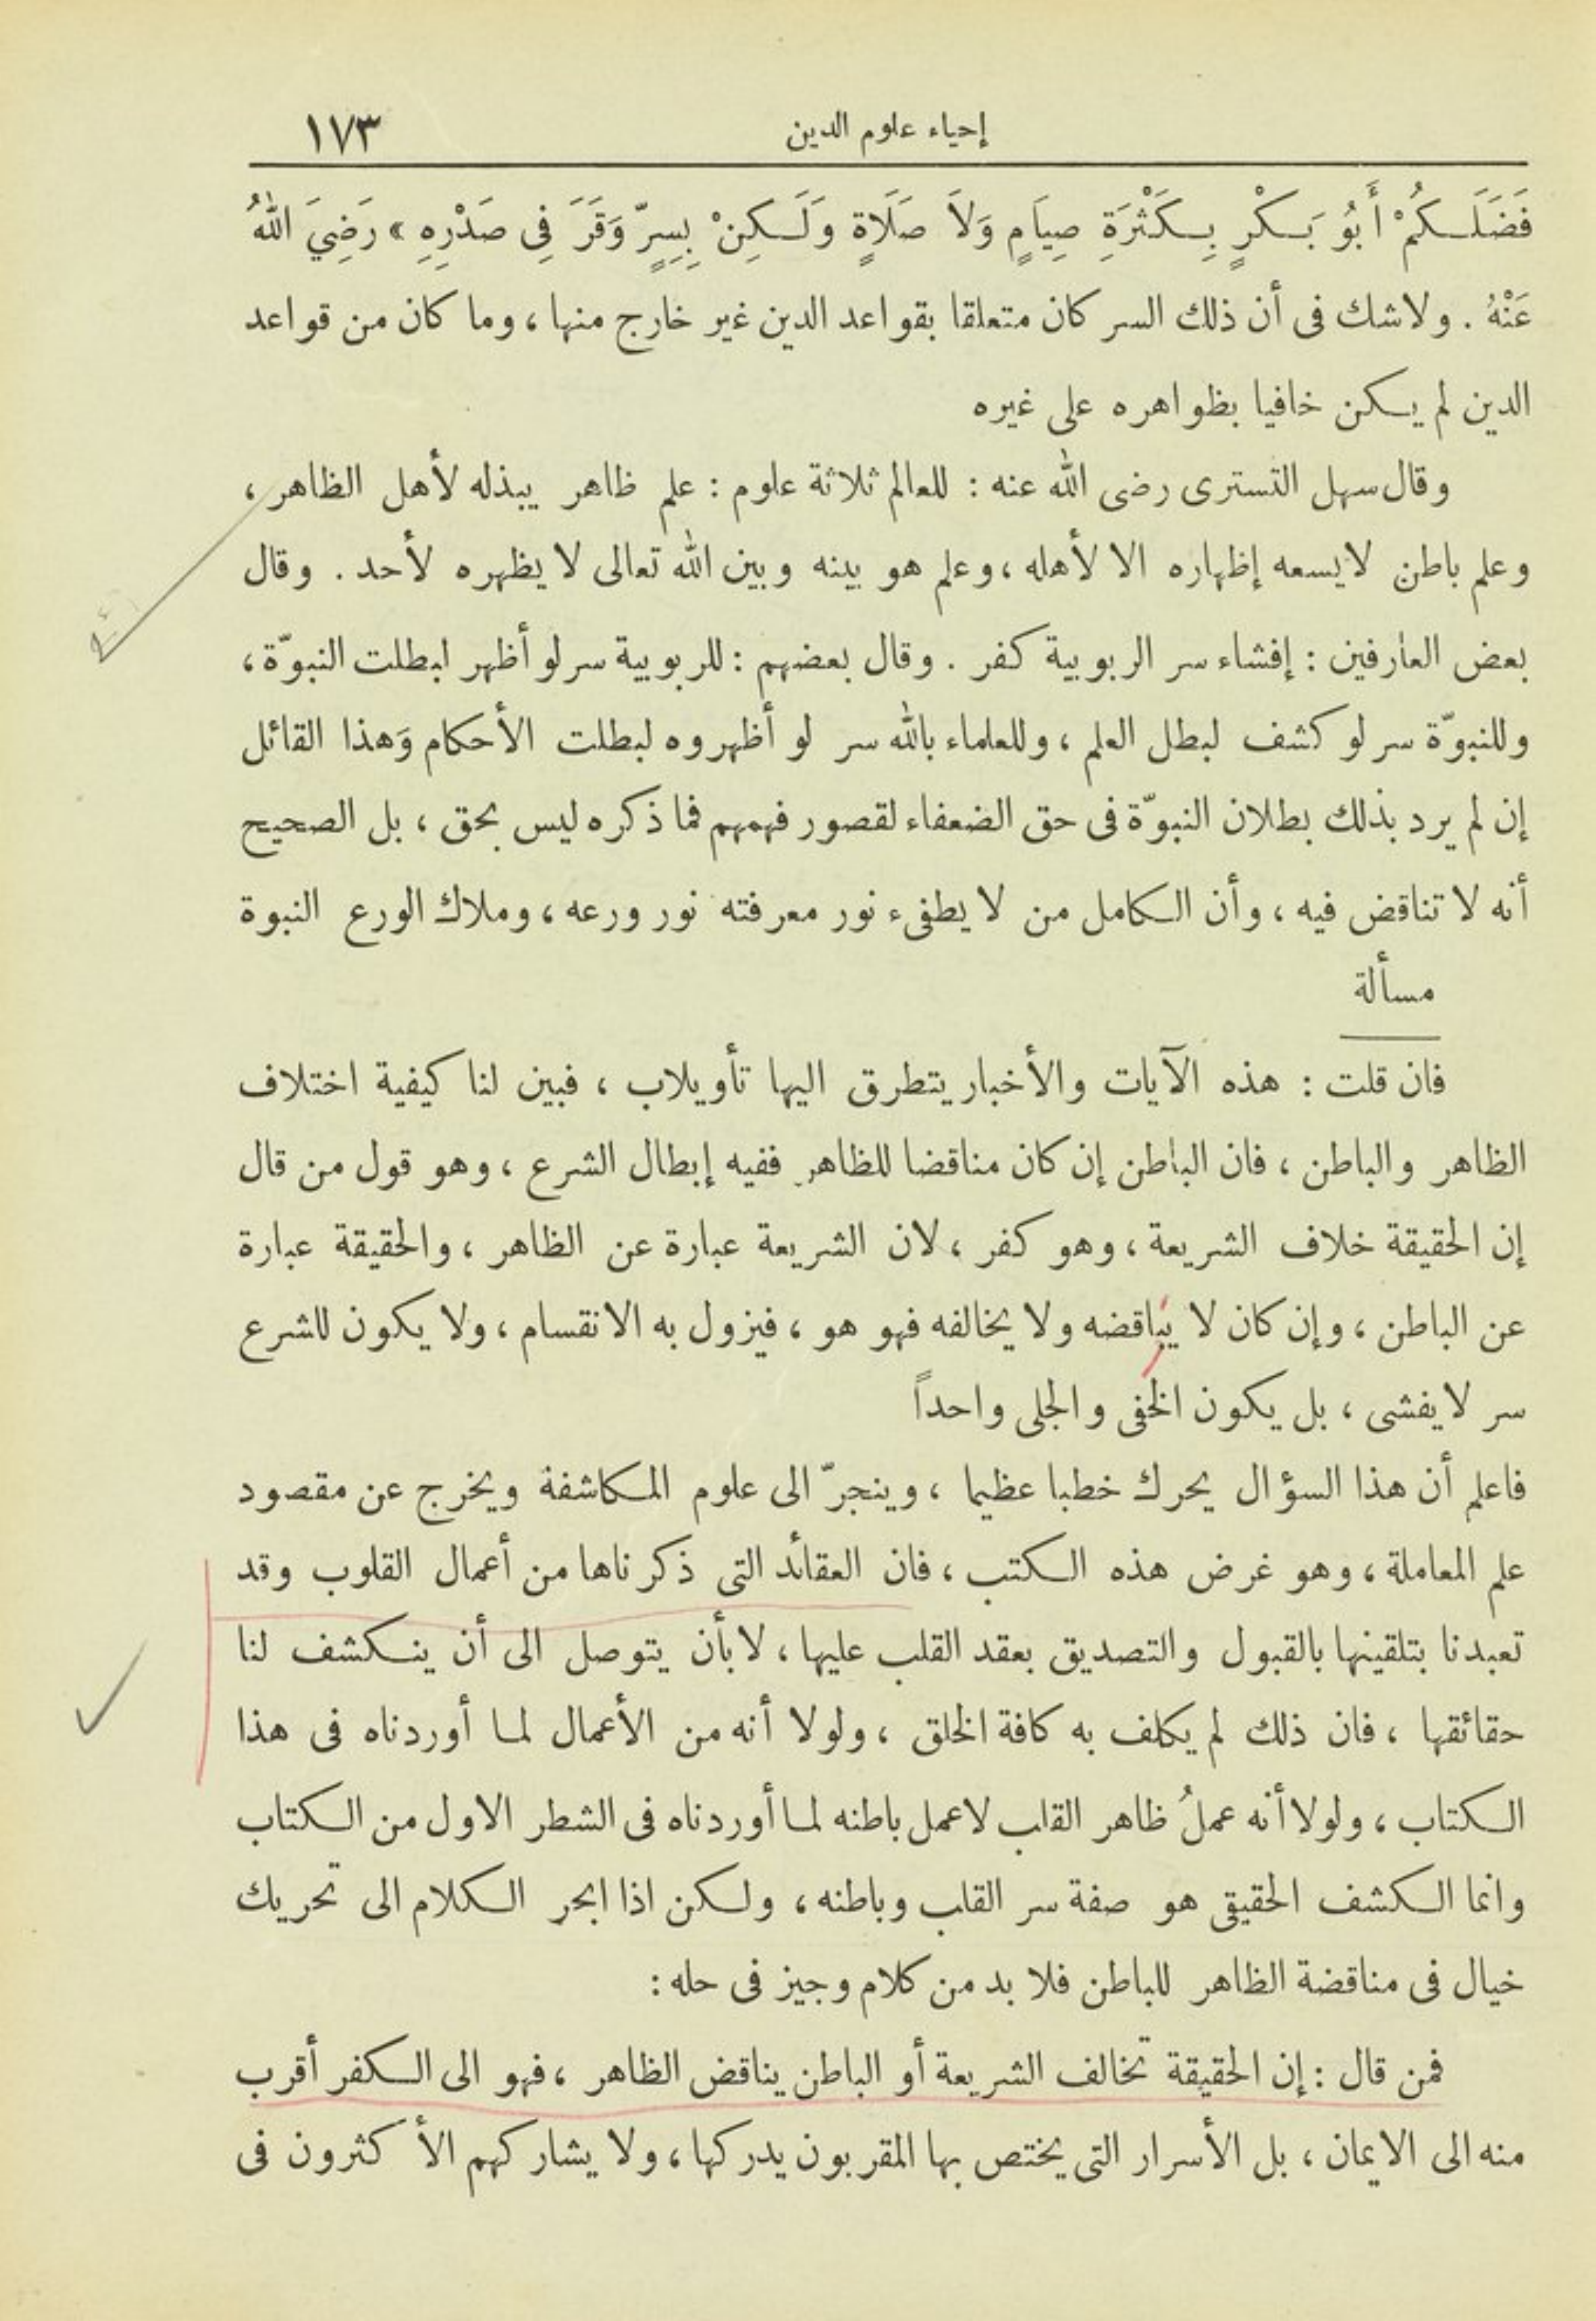 إحياء علوم الدين ١٧٣
فَضَلَكُمْ أَبُو بَكْرٍ بِكَثْرَةِ صِيَامٍ وَلاَ صَلَاةٍ وَلَكِنْ بِسِرٍّ وَقَرَ فِى صَدْرِهِ » رَضِيَ اللهُ
عَنْهُ . ولاشك فى أن ذلك السر كان متعلقا بقواعد الدين غير خارج منها ، وما كان من قواعد
الدين لم يكن خافيا بظواهره على غيره
وقال سهل التسترى رضى الله عنه : للعالم ثلاثة علوم : علم ظاهر يبذله لأهل الظاهر ،
وعلم باطن لايسعه إظهاره الا لأهله ، وعلم هو بينه وبين الله تعالى لا يظهره لأحد . وقال
بعض العارفين : إفشاء سر الربوبية كفر . وقال بعضهم : للربوبية سر لو أظهر لبطلت النبوّة ،
وللنبوّة سر لو كشف لبطل العلم ، وللعلماء بالله سر لو أظهروه لبطلت الأحكام وَهذا القائل
إن لم يرد بذلك بطلان النبوّة فى حق الضعفاء لقصور فهمهم فما ذكره ليس بحق ، بل الصحيح
أنه لا تناقض فيه ، وأن الكامل من لا يطفىء نور معرفته نور ورعه ، وملاك الورع النبوة
مسألة
فان قلت : هذه الآيات والأخبار يتطرق اليها تأويلاب ، فبين لنا كيفية اختلاف
الظاهر والباطن ، فان الباطن إن كان مناقضا للظاهر ففيه إبطال الشرع ، وهو قول من قال
إن الحقيقة خلاف الشريعة ، وهو كفر ، لان الشريعة عبارة عن الظاهر ، والحقيقة عبارة
عن الباطن ، وإن كان لا يناقضه ولا يخالفه فهو هو ، فيزول به الانقسام ، ولا يكون للشرع
سر لا يفشى ، بل يكون الخفى والجلى واحداً
فاعلم أن هذا السؤال يحرك خطبا عظيما ، وينجرّ الى علوم المكاشفة ويخرج عن مقصود
علم المعاملة ، وهو غرض هذه الكتب ، فان العقائد التى ذكرناها من أعمال القلوب وقد
تعبدنا بتلقينها بالقبول والتصديق بعقد القلب عليها ، لا بأن يتوصل الى أن ينكشف لنا
حقائقها ، فان ذلك لم يكلف به كافة الخلق ، ولولا أنه من الأعمال لما أوردناه فى هذا
الكتاب ، ولولا أنه عملُ ظاهر القلب لاعمل باطنه لما أوردناه فى الشطر الاول من الكتاب
وانما الكشف الحقيقى هو صفة سر القلب وباطنه ، ولكن اذا انجر الكلام الى تحريك
خيال فى مناقضة الظاهر للباطن فلا بد من كلام وجيز فى حله :
فمن قال : إن الحقيقة تخالف الشريعة أو الباطن يناقض الظاهر ، فهو الى الكفر أقرب
منه الى الايمان ، بل الأسرار التى يختص بها المقربون يدركها ، ولا يشاركهم الأكثرون فى